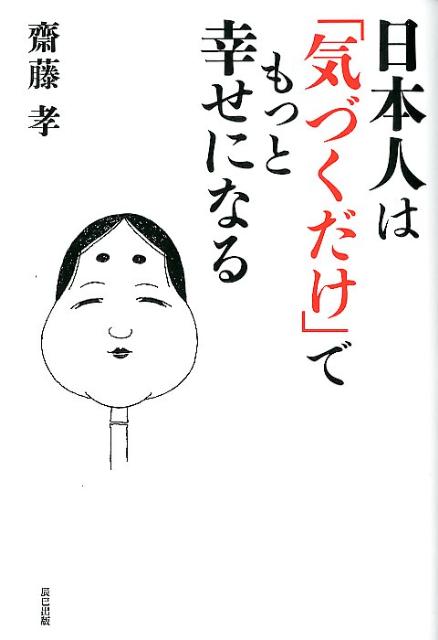 日本人は
「気づくだけ」で
もっと
幸せになる
齋藤 孝
辰巳出版